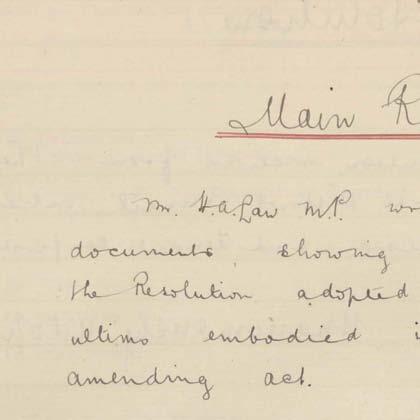 Main R
Mr. H.A. Law M.P. wr
documents, showing
the Resolution adopted
ultimo embodied i
amending act.